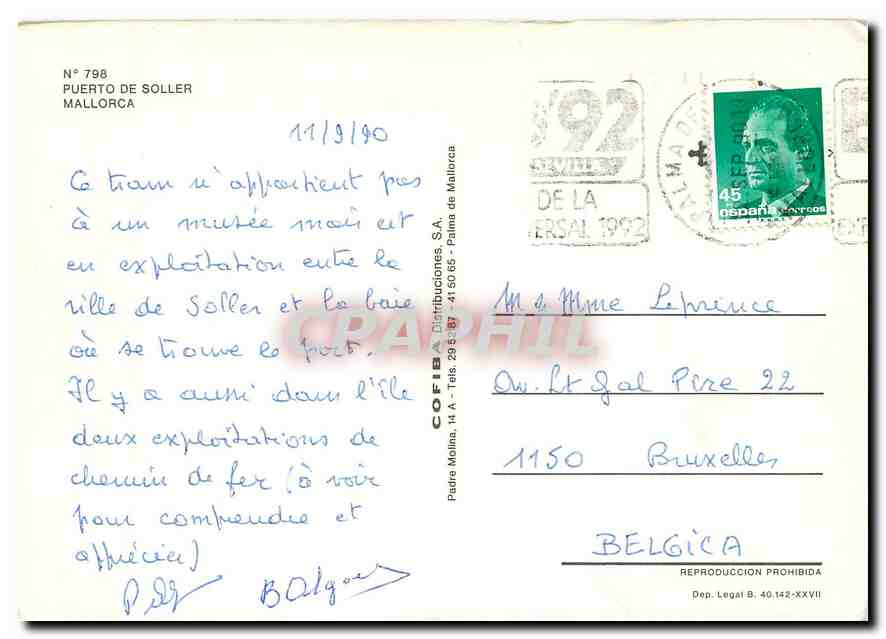 N° 798
PUERTO DE SOLLER
MALLORCA
11/9/90
Ce tram n'appartient pas
à un musée mais est
en exploitation entre la
ville de Soller et la baie
où se trouve le port.
Il y a aussi dans l'île
deux exploitations de
chemin de fer (à voir
pour comprendre et
apprécier)
COFIBA Distribuciones, S.A.
Padre Molina, 14 A - Tels. 29 52 87 - 41 50 65 - Palma de Mallorca
'92
SEVILLA
DE LA
VERSAL 1992
PALMA DE
SEP. 90
45
españa correos
M & Mme Leprince
Av. Lt Gal Pire 22
1150 Bruxelles
BELGICA
REPRODUCCION PROHIBIDA
Dep. Legal B. 40.142-XXVII
CPAPHIL